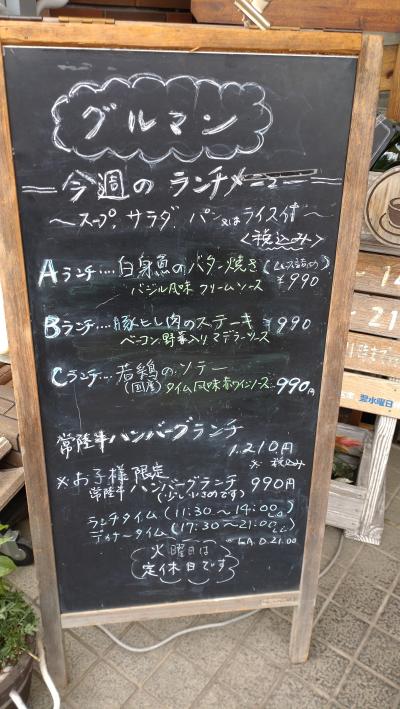 グルマン
今週の ランチメニュー
〜スープ、サラダ、パン又はライス付〜
<税込み>
Aランチ…白身魚のバター焼き
バジル風味 クリームソース ¥990
Bランチ…豚ヒレ肉のステーキ ¥990
ベーコン野菜入りマデラソース
Cランチ…若鶏のソテー
(国産) タイム風味赤ワインソース 990円
常陸牛ハンバーグランチ
1,210円
※税込み
※お子様限定
常陸牛ハンバーグランチ 990円
(少し小さめです)
ランチタイム (11:30〜14:00
ディナータイム (17:30〜21:00
L.A.O 21:00
火曜日は
定休日です
翌水曜日